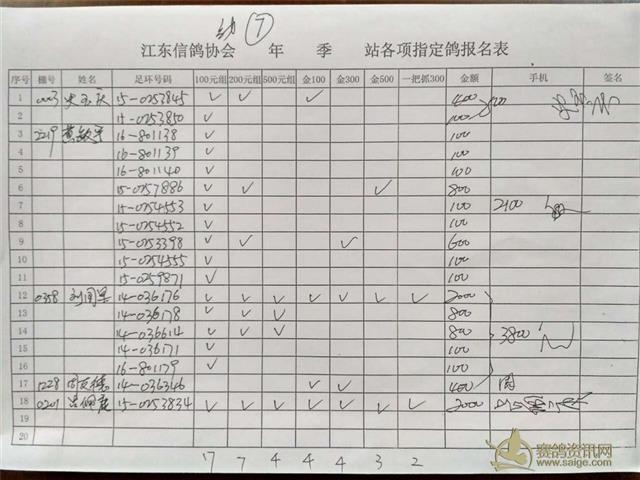 幼 7
江东信鸽协会 年 季 站各项指定鸽报名表
序号 棚号 姓名 足环号码 100元组 200元组 500元组 金100 金300 金500 一把抓300 金额 手机 签名
1 0003 15-0253845 ✓ ✓ ✓ 400
2 15-0253850 ✓ 100
3 2219 黄敏宇 16-801138 ✓ 100
4 16-801139 ✓ 100
5 16-801140 ✓ 100
6 15-0257886 ✓ ✓ ✓ 800
7 15-0254553 ✓ 100 2100
8 15-0254552 ✓ 100
9 15-0253398 ✓ ✓ ✓ 600
10 15-0254555 ✓ 100
11 15-0259871 ✓ 100
12 0358 刘国军 14-036176 ✓ ✓ ✓ ✓ ✓ ✓ ✓ 2000
13 14-036178 ✓ ✓ ✓ 800
14 14-036614 ✓ ✓ ✓ 800 3800
15 14-036171 ✓ 100
16 16-801179 ✓ 100
17 1228 14-036346 ✓ ✓ 400 周
18 0201 15-0253834 ✓ ✓ ✓ ✓ ✓ ✓ ✓ 2000
19
20
17 7 4 4 4 3 2
赛鸽资讯网
www.saige.com